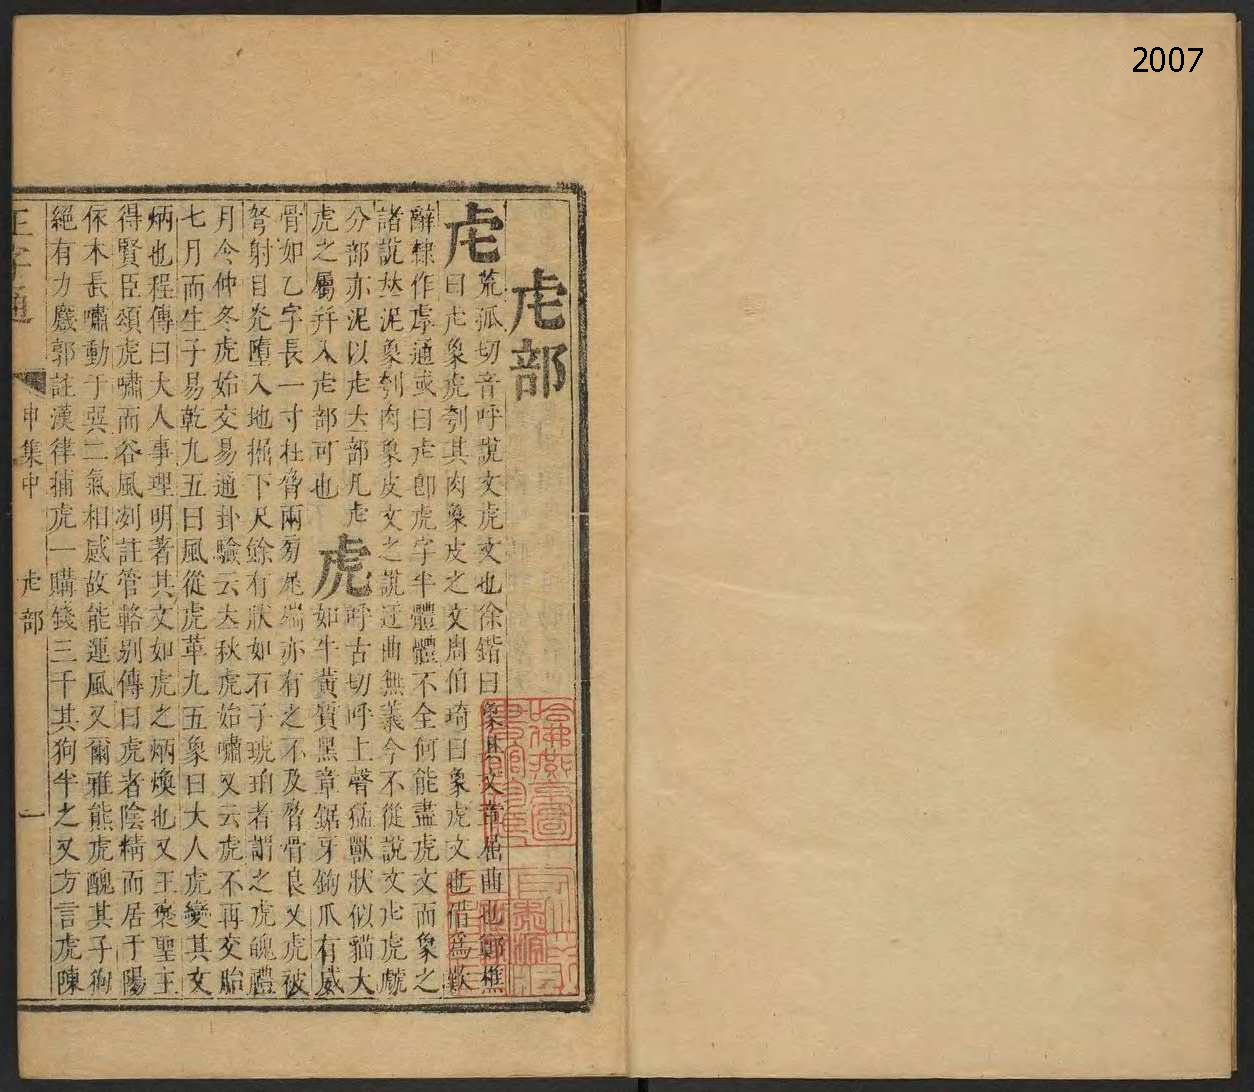 2007
虍部
虍荒孤切音呼說文虎文也徐鍇曰象其文章屈曲也鄭樵
曰虍象虎刳其肉象皮之文周伯琦曰象虎文也借爲歎
辭隸作虖通或曰虍卽虎字半體體不全何能盡虎文而象之
諸說𠀤泥象刳肉象皮文之說迂曲無義今不從說文虍虎虤
分部亦泥以虍大部凡虍
虎之屬幷入虍部可也
虎呼古切呼上聲猛獸狀似貓大
如牛黃質黑章鋸牙鉤爪有威
骨如乙字長一寸在脅兩旁尾端亦有之不及脅骨良又虎被
弩射目光墮入地掘下尺餘有狀如石子琥珀者謂之虎魄禮
月令仲冬虎始交易通卦驗云立秋虎始嘯又云虎不再交胎
七月而生子易乾九五曰風從虎革九五象曰大人虎變其文
炳也程傳曰大人事理明著其文如虎之炳煥也又王褒聖主
得賢臣頌虎嘯而谷風冽註管輅別傳曰虎者陰精而居于陽
依木長嘯動于巽二氣相感故能運風又爾雅熊虎醜其子狗
絕有力麙郭註漢律捕虎一購錢三千其狗半之又方言虎陳
正字通
申集中
虍部
一
哈佛燕京圖書館